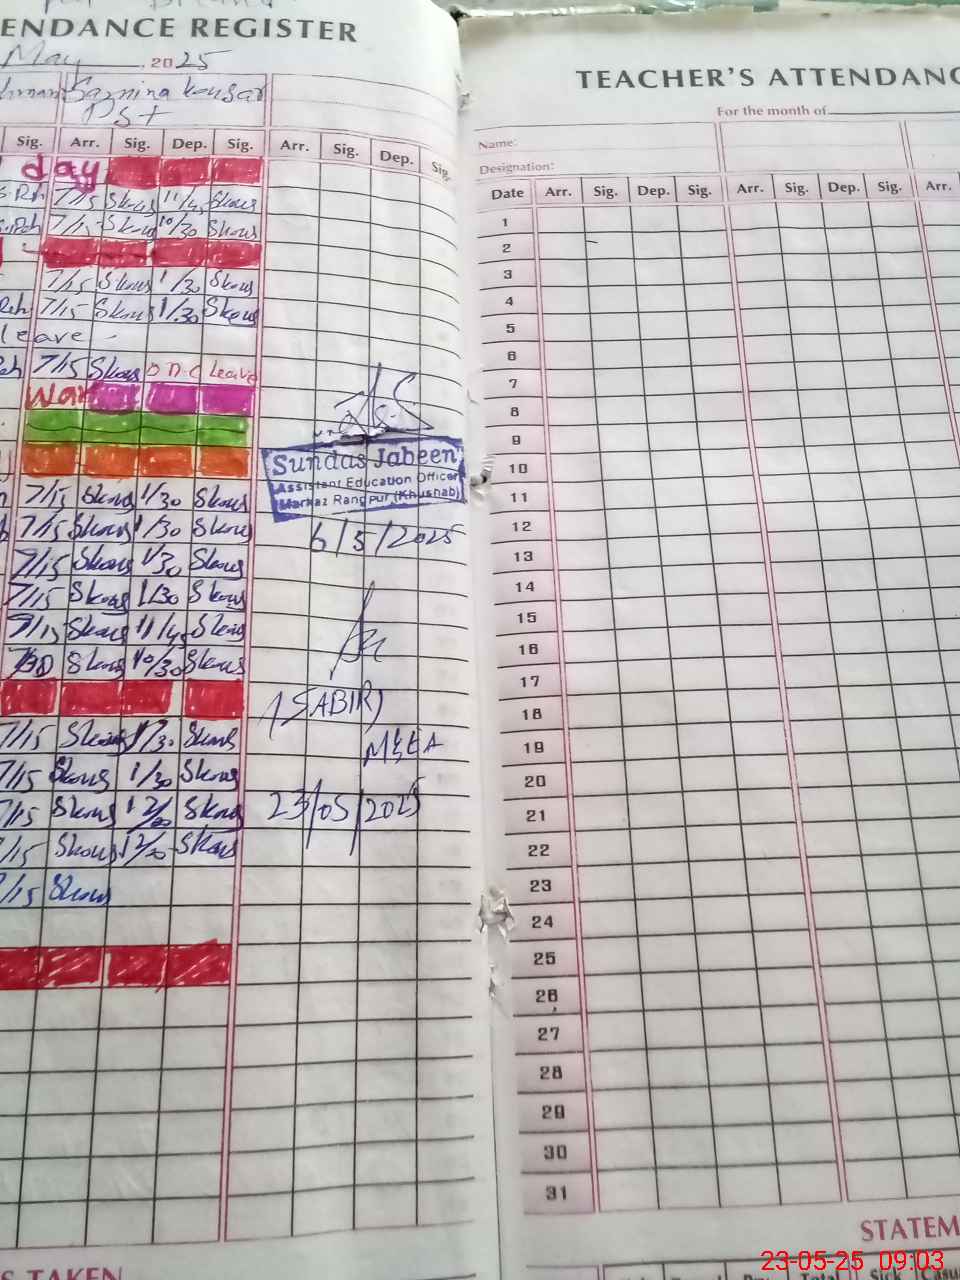 ENDANCE REGISTER
May, 2025
Sazmina Kousar
PST
Sig. Arr. Sig. Dep. Sig. Arr. Sig. Dep. Sig.
day
7/15 Skous 11/45 Skous
7/15 Skous 10/30 Skous
7/15 Skous 1/30 Skous
7/15 Skous 1/30 Skous
leave
7/15 Skous Leave
War
Sundas Jabeen
Assistant Education Officer
Markaz Rangpur (Khushab)
7/15 Skous 1/30 Skous
7/15 Skous 1/30 Skous
6/5/2025
7/15 Skous 1/30 Skous
7/15 Skous 1/30 Skous
7/15 Skous 11/45 Skous
Skous 10/30 Skous
(SABIR)
7/15 Skous 1/30 Skous
MEA
7/15 Skous 1/30 Skous
7/15 Skous Skous
23/05/2025
/15 Skous Skous
/15 Skous
S TAKEN
TEACHER'S ATTENDANC
For the month of
Name:
Designation:
Date Arr. Sig. Dep. Sig. Arr. Sig. Dep. Sig. Arr.
1
2
3
4
5
6
7
8
9
10
11
12
13
14
15
16
17
18
19
20
21
22
23
24
25
26
27
28
29
30
31
STATEM
Total Sick
23-05-25 09:03